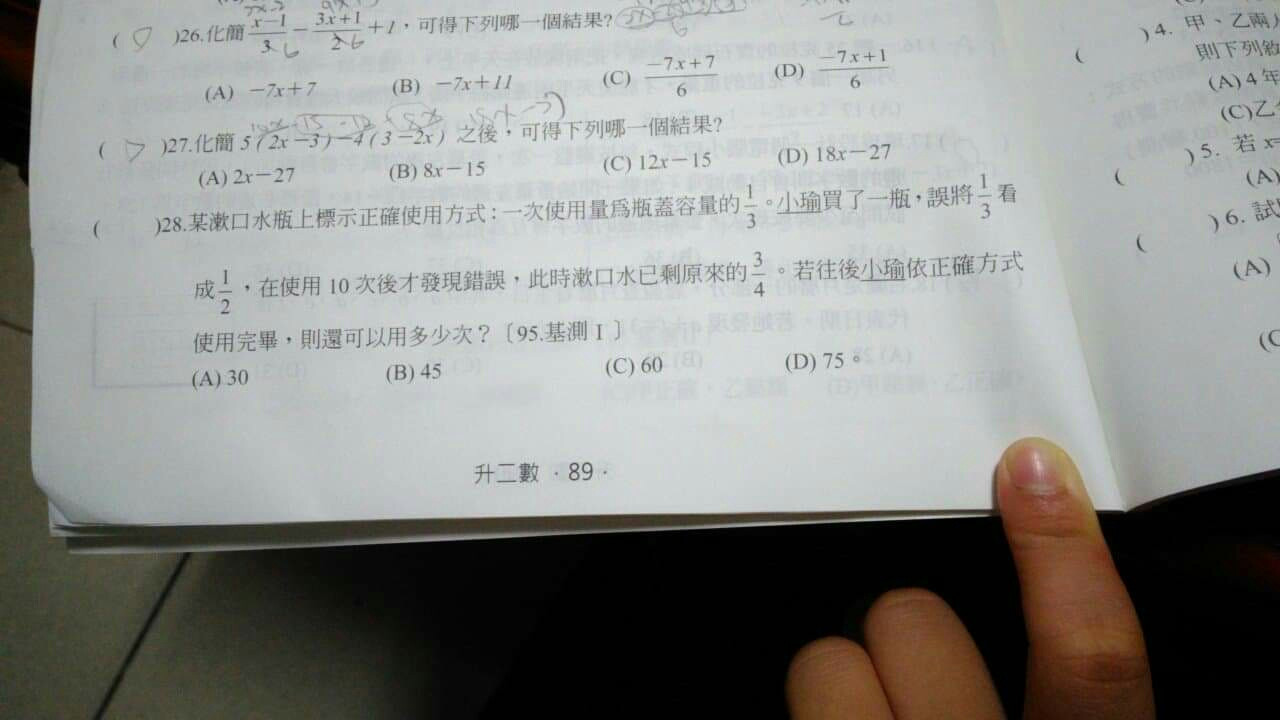 ( D )26.化簡 x−1/3 − 3x+1/2 +1,可得下列哪一個結果?
(A) −7x+7 (B) −7x+11 (C) −7x+7/6 (D) −7x+1/6
( D )27.化簡 5(2x−3)−4(3−2x) 之後,可得下列哪一個結果?
(A) 2x−27 (B) 8x−15 (C) 12x−15 (D) 18x−27
( )28.某漱口水瓶上標示正確使用方式:一次使用量爲瓶蓋容量的 1/3。小瑜買了一瓶,誤將 1/3 看
成 1/2,在使用 10 次後才發現錯誤,此時漱口水已剩原來的 3/4。若往後小瑜依正確方式
使用完畢,則還可以用多少次?〔95.基測 I〕
(A) 30 (B) 45 (C) 60 (D) 75。
升二數 ·89·
( )4. 甲、乙兩
則下列
(A) 4 年
(C)乙
( )5. 若 x
(A)
( )6. 試
(A)